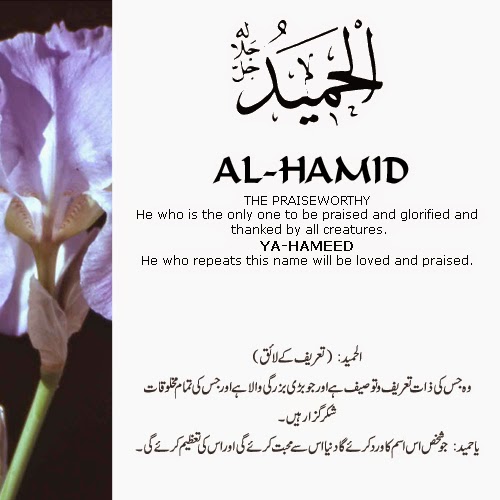 الحميد جل جلاله
AL-HAMID
THE PRAISEWORTHY
He who is the only one to be praised and glorified and
thanked by all creatures.
YA-HAMEED
He who repeats this name will be loved and praised.
الحمید: (تعریف کے لائق)
وہ جس کی ذات تعریف و توصیف ہے اور جو بڑی بزرگی والا ہے اور جس کی تمام مخلوقات
شکر گزار ہیں۔
یا حمید: جو شخص اس اسم کا ورد کرے گا دنیا اس سے محبت کرے گی اور اس کی تعظیم کرے گی۔